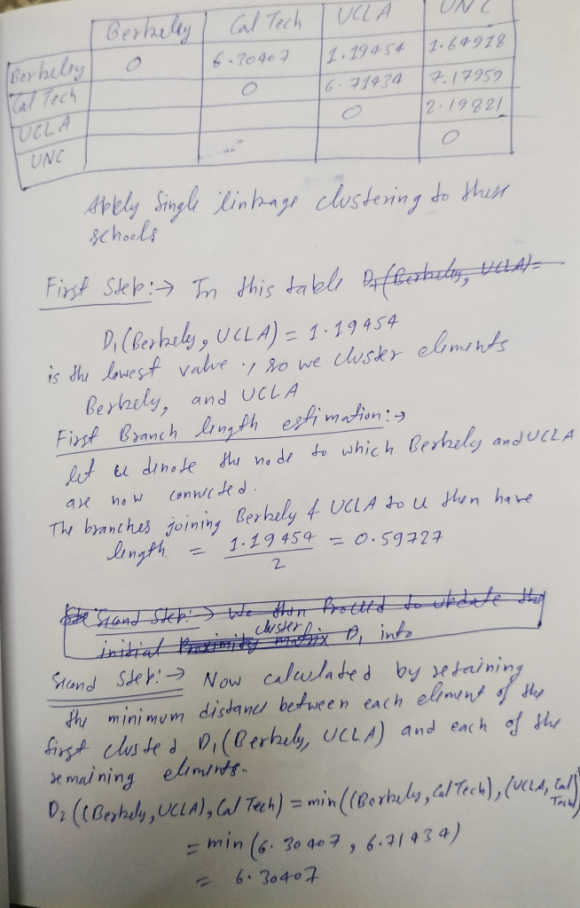 Berkeley Cal Tech UCLA UNC
Berkeley 0 6.30407 1.19454 1.64918
Cal Tech 0 6.71434 7.17959
UCLA 0 2.19821
UNC 0
Apply Single linkage clustering to these
schools
First Step:→ In this table D1(Berkely, UCLA)=
D1(Berkely, UCLA) = 1.19454
is the lowest value, so we cluster elements
Berkely, and UCLA
First Branch length estimation:→
let u denote the node to which Berkely and UCLA
are now connected.
The branches joining Berkely & UCLA to u then have
length = 1.19454 / 2 = 0.59727
Second Step:→ We then Proceed to update the
initial Proximity matrix cluster D1 into
Second Step:→ Now calculated by retaining
the minimum distance between each element of the
first clusted D1(Berkely, UCLA) and each of the
remaining elements.
D2((Berkely,UCLA),Cal Tech) = min((Berkely,Cal Tech),(UCLA, Cal Tech)
= min(6.30407, 6.71434)
= 6.30407